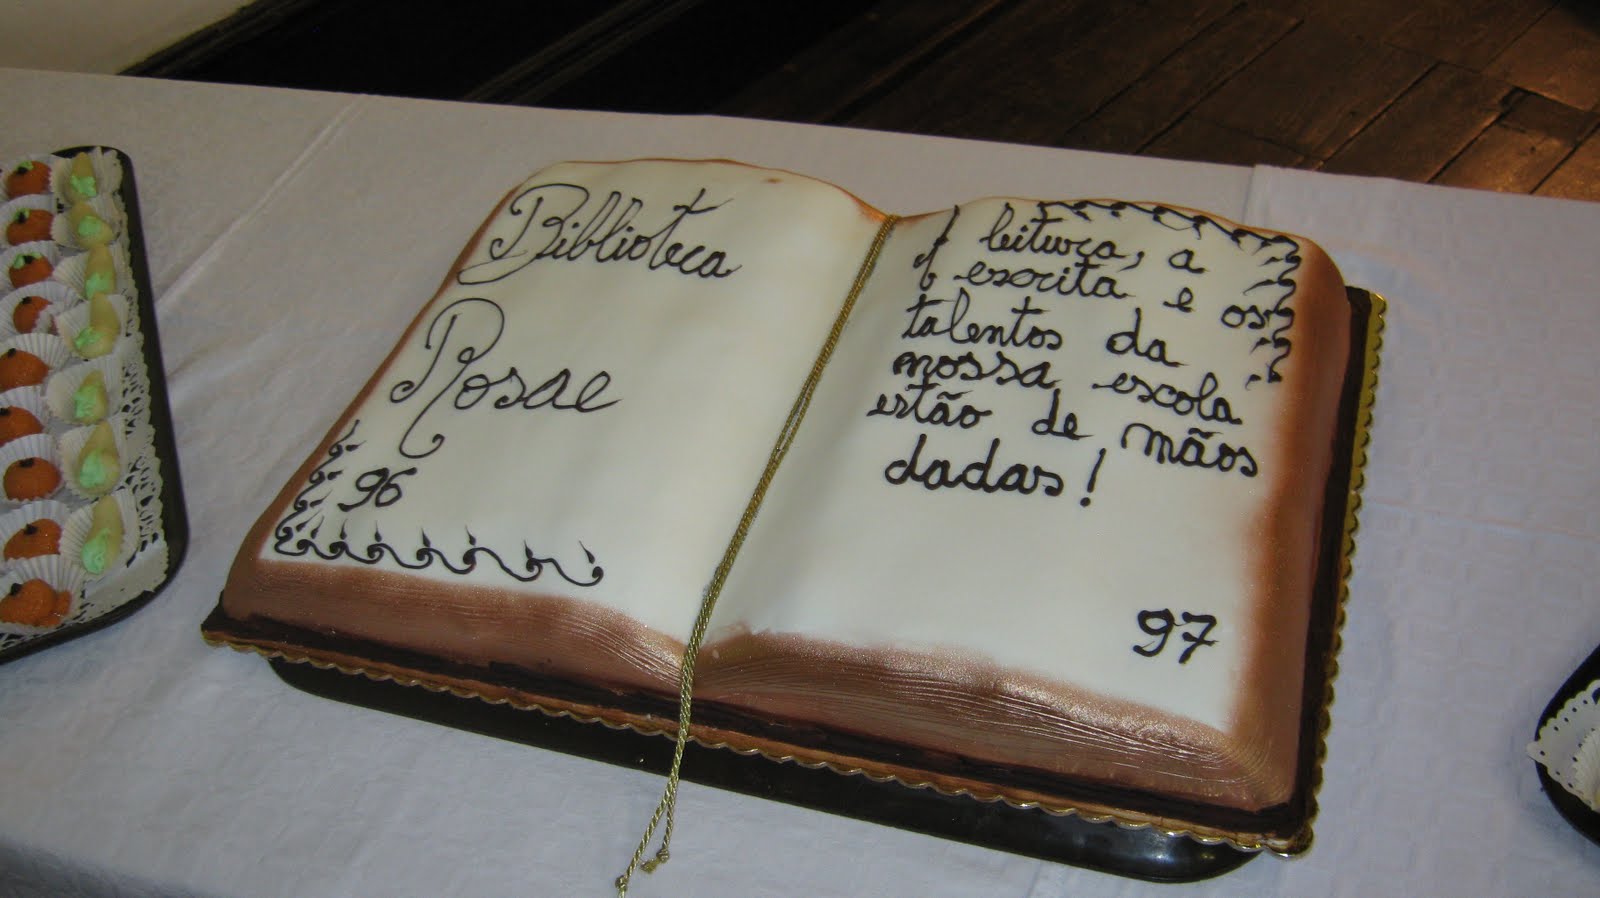 Biblioteca
Rosae
96
A leitura, a
escrita e os
talentos da
nossa escola
estão de mãos
dadas!
97